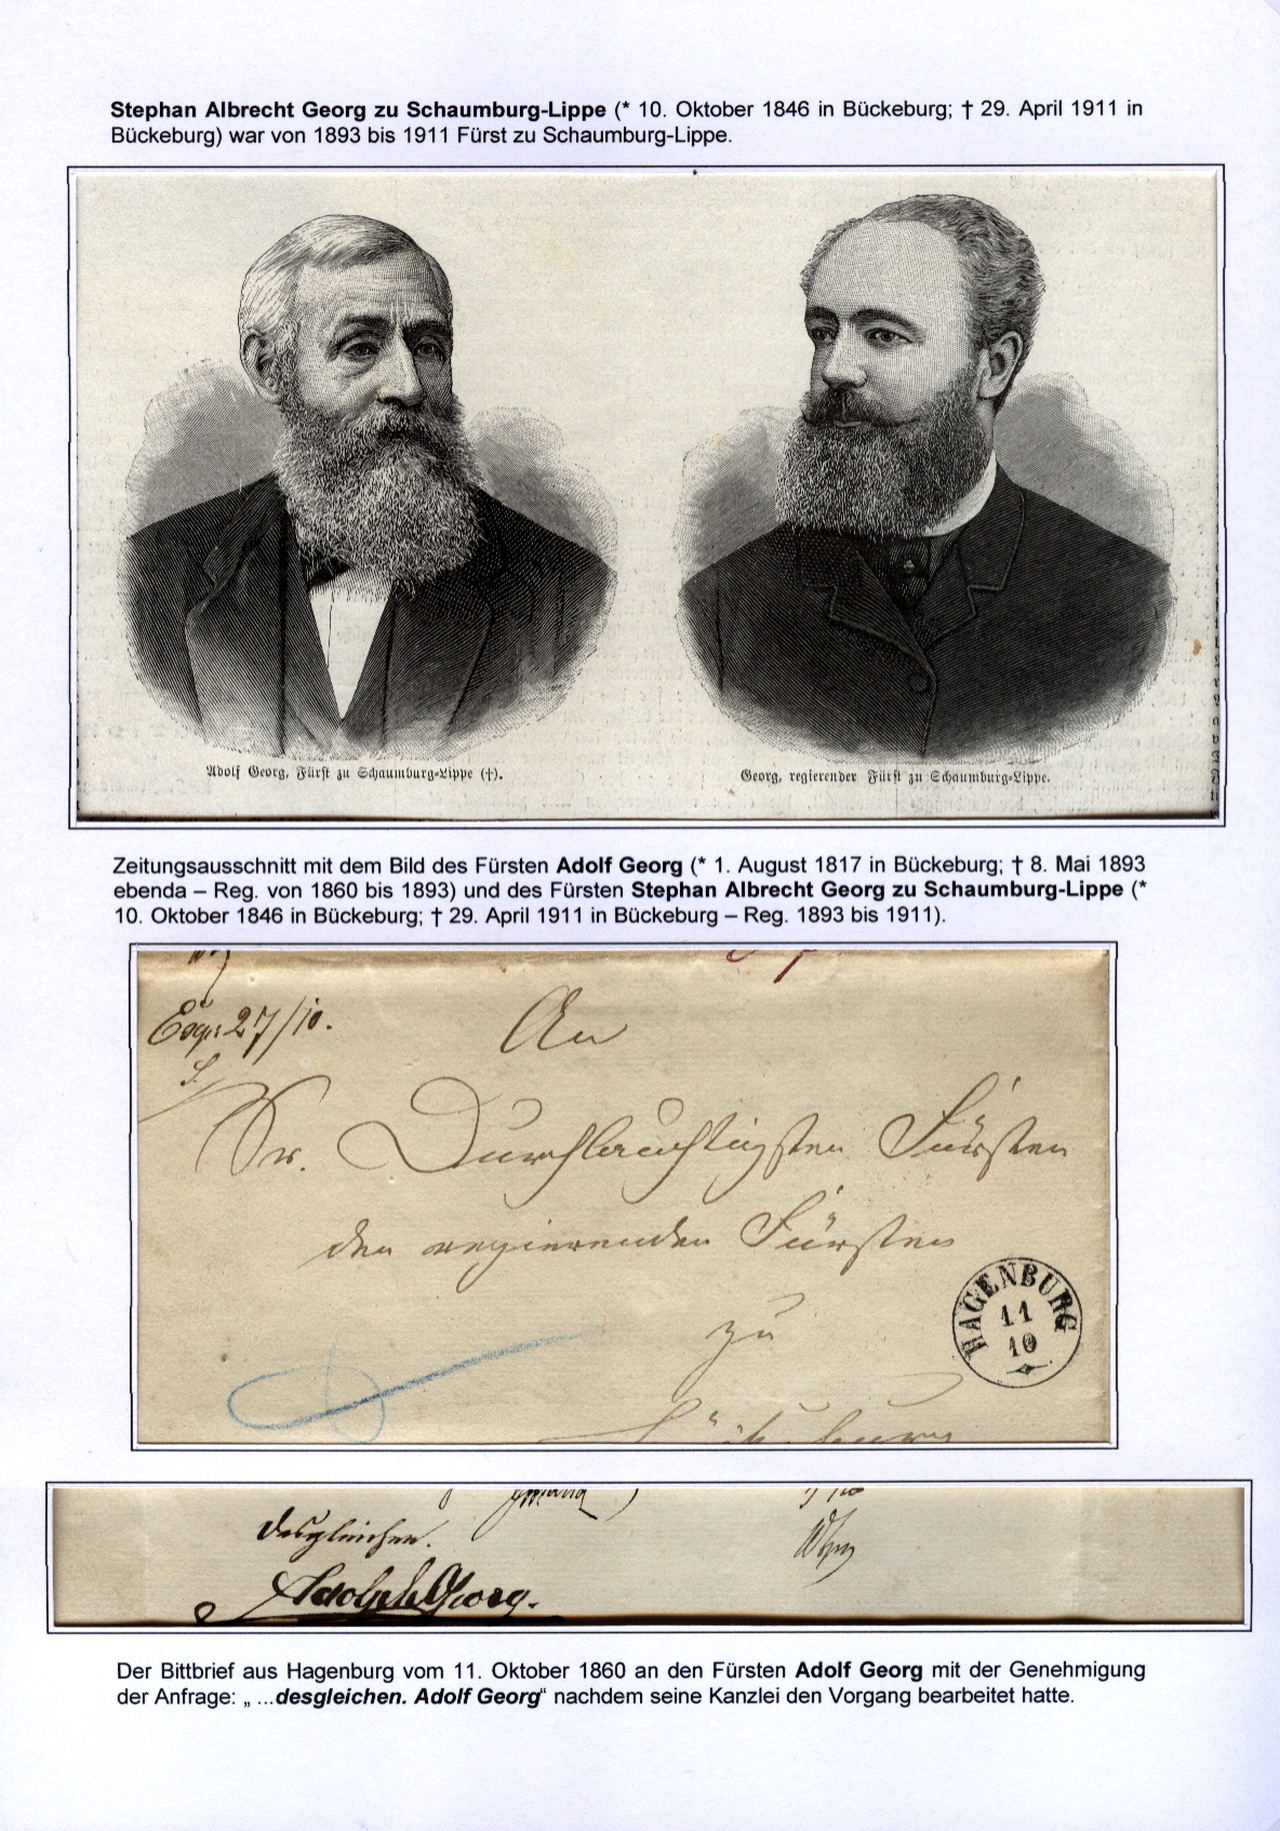 Stephan Albrecht Georg zu Schaumburg-Lippe (* 10. Oktober 1846 in Bückeburg; † 29. April 1911 in
Bückeburg) war von 1893 bis 1911 Fürst zu Schaumburg-Lippe.
Adolf Georg, Fürst zu Schaumburg-Lippe (†).
Georg, regierender Fürst zu Schaumburg-Lippe.
Zeitungsausschnitt mit dem Bild des Fürsten Adolf Georg (* 1. August 1817 in Bückeburg; † 8. Mai 1893
ebenda – Reg. von 1860 bis 1893) und des Fürsten Stephan Albrecht Georg zu Schaumburg-Lippe (*
10. Oktober 1846 in Bückeburg; † 29. April 1911 in Bückeburg – Reg. 1893 bis 1911).
27/10.
An
Sr. Durchlauchtigsten Fürsten
den regierenden Fürsten
zu
Bückeburg
HAGENBURG
11
10
desgleichen.
Adolph Georg.
Der Bittbrief aus Hagenburg vom 11. Oktober 1860 an den Fürsten Adolf Georg mit der Genehmigung
der Anfrage: „ ...desgleichen. Adolf Georg“ nachdem seine Kanzlei den Vorgang bearbeitet hatte.